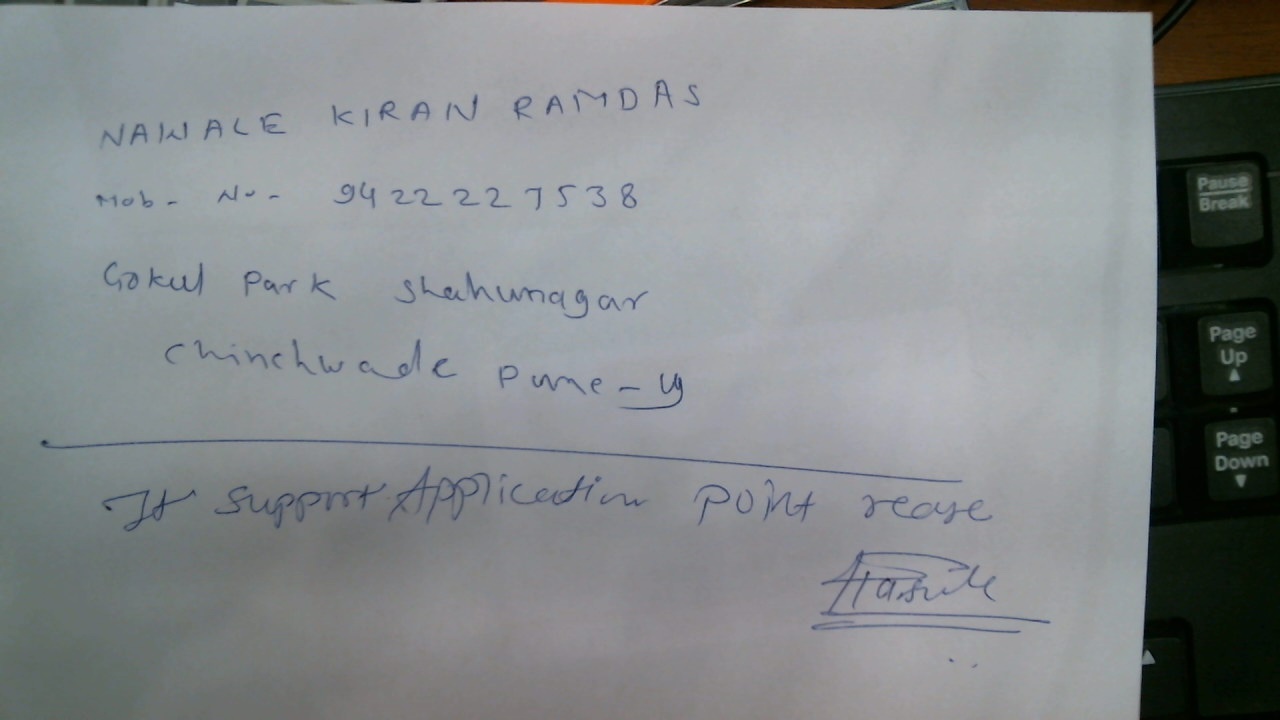 NAWALE KIRAN RAMDAS
Mob - No - 9422227538
Gokul Park Shahunagar
Chinchwade Pune - 19
It Support Application Point rease
Pause
Break
Page
Up
Page
Down